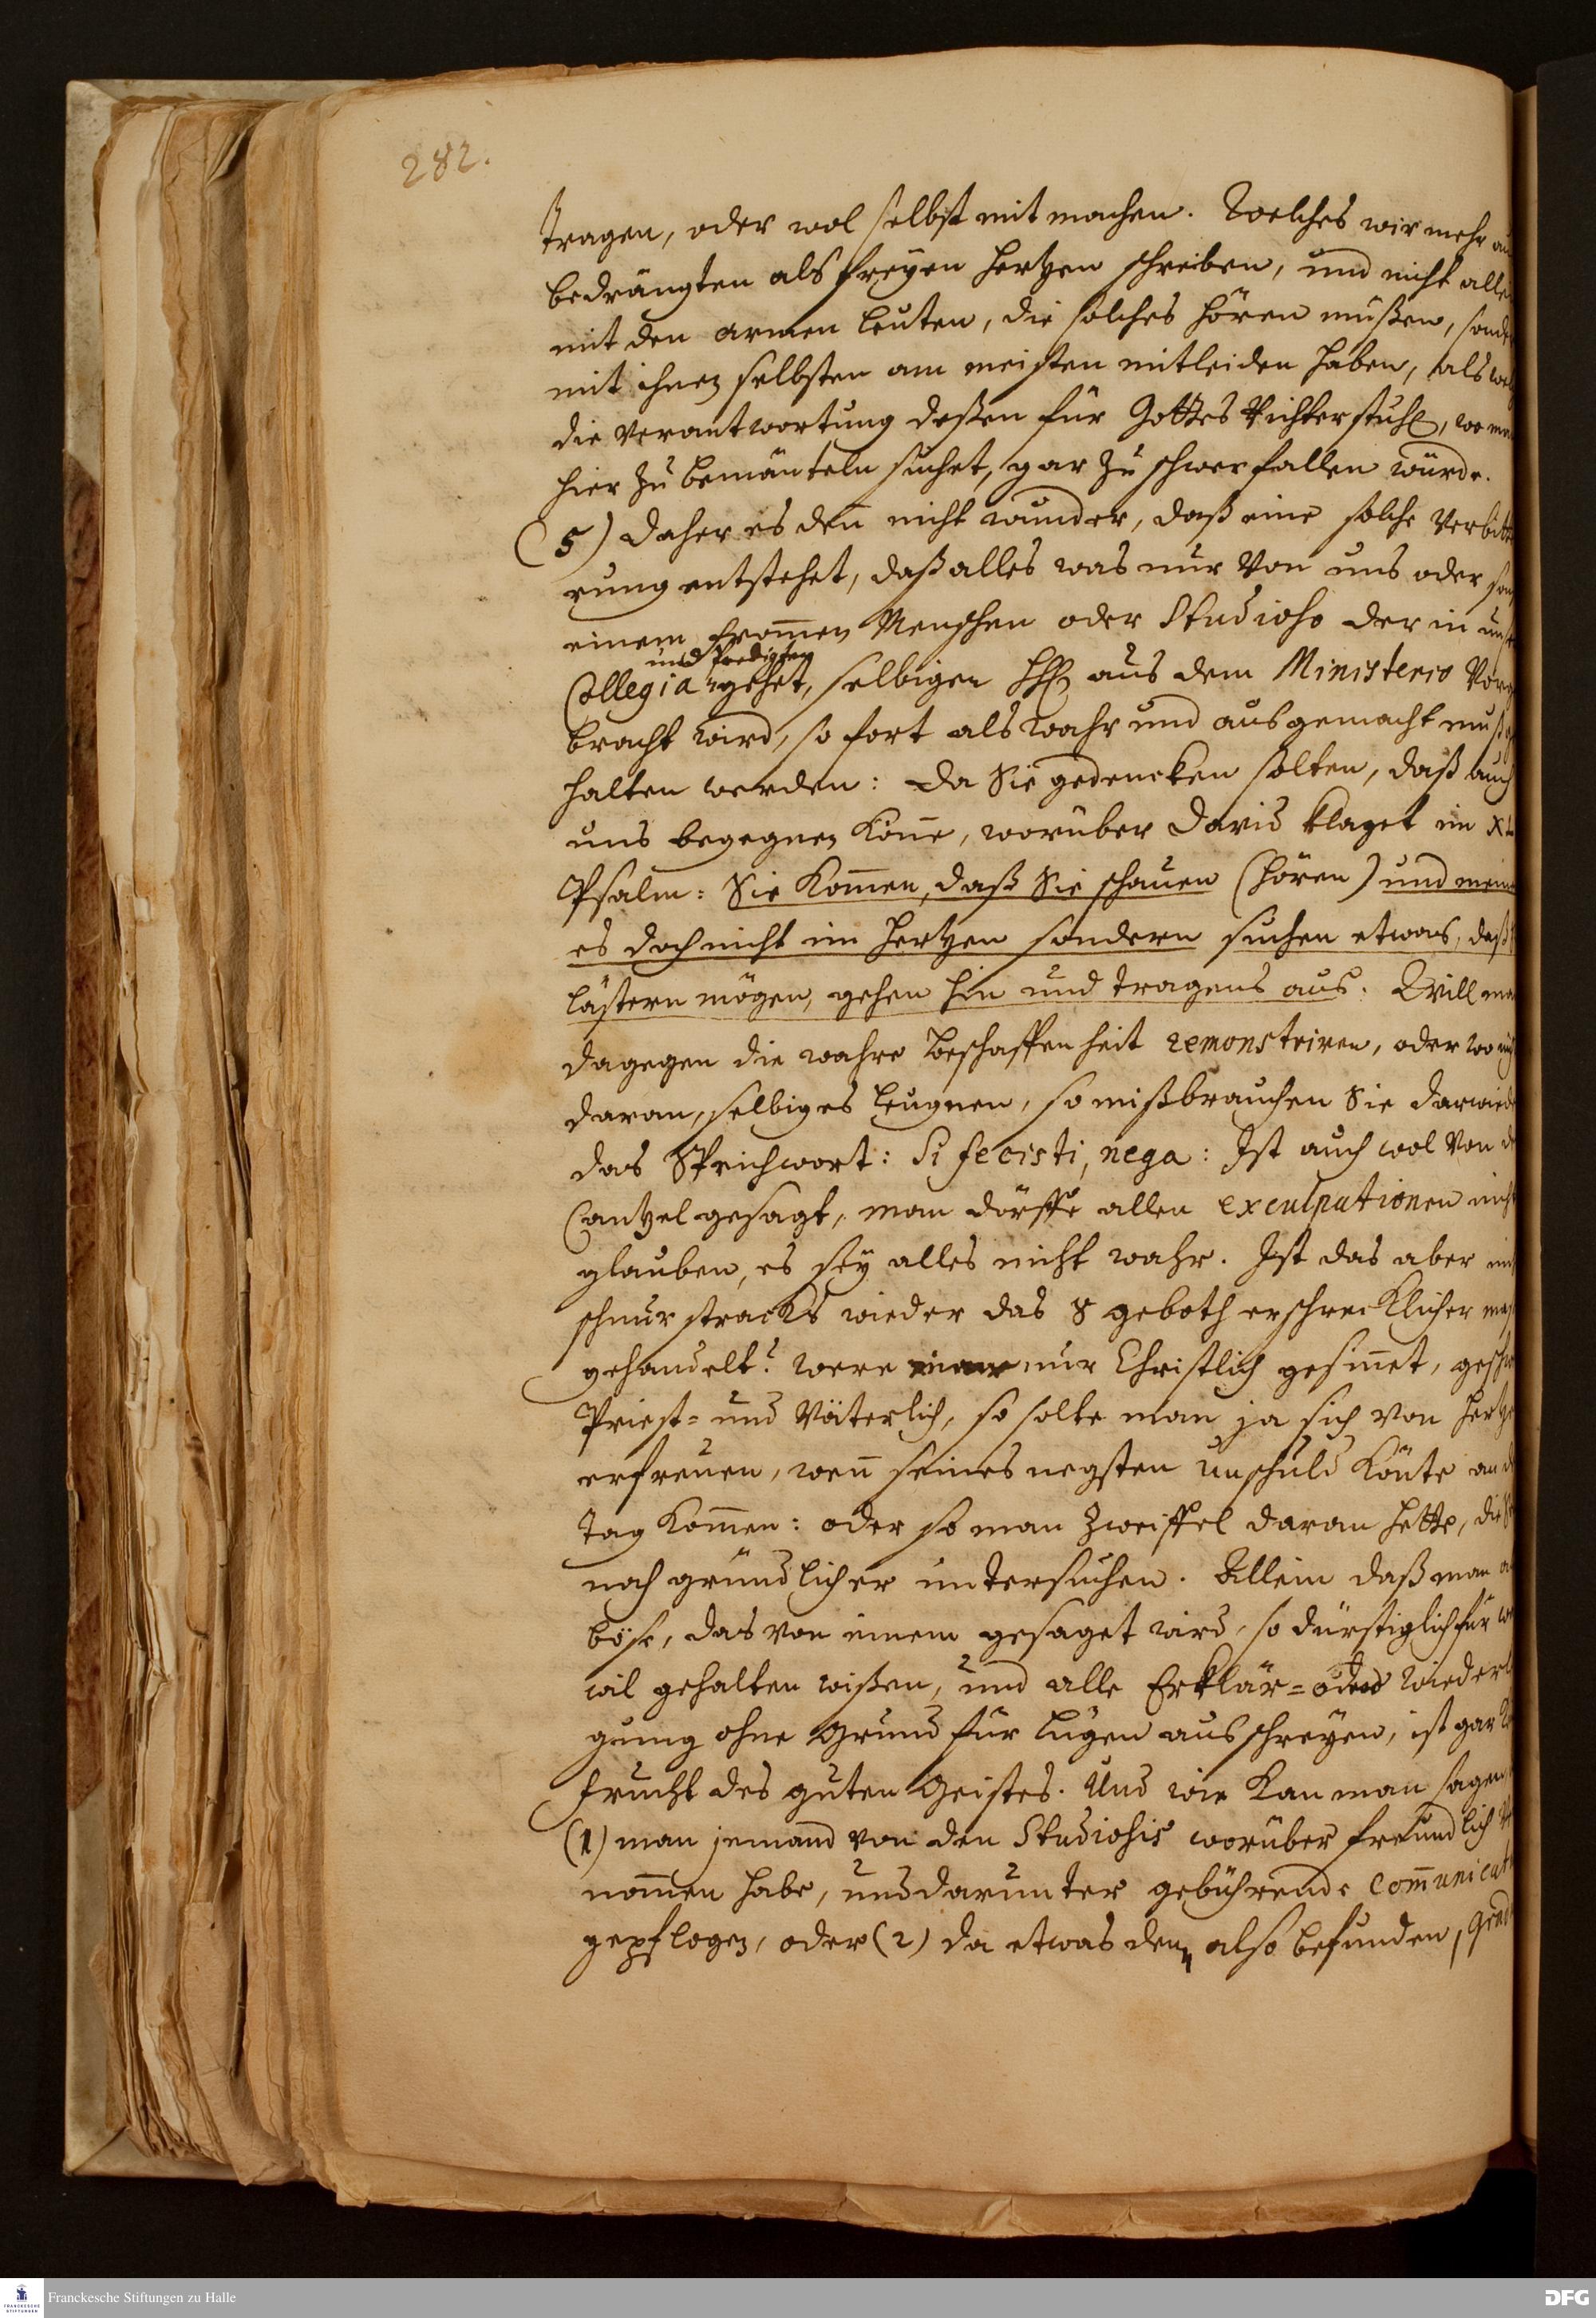 282.
tragen, oder wol selbst mit machen. Welches wir mehr au
bedrängten als freyen Hertzen schreiben, und nicht alle
mit den armen Leuten, die solches hören müßen, sond
mit ihnen selbsten am meisten mitleiden haben, als
die Verantwortung deßen für Gottes Richterstuhl, wo
hier zu bemänteln suchet, gar zu schwer fallen würde.
(5) Daher es deñ nicht wunder, daß eine solche Verbitt
rung entstehet, daß alles was nur von uns oder
einem from̃en Menschen oder Studioso der in
und Predigten
Collegia gehet, selbigen HH. aus dem Ministerio Vor
bracht wird, so fort als wahr und ausgemacht muß
halten werden: Da Sie gedencken solten, daß auch
uns begegnen köñe, worüber David klaget im
Psalm: Sie kom̃en, daß Sie schauen (hören) und mein
es doch nicht im Hertzen sondern suchen etwas, daß
lästern mögen, gehen hin und tragens aus. Will
dagegen die wahre Beschaffenheit remonstriren, oder wo
daran, selbiges leugnen, so mißbrauchen Sie darwied
das Sprichwort: Si fecisti, nega: Ist auch wol von d
Cantzel gesagt, man dörffe allen exculpationen nicht
glauben, es sey alles nicht wahr. Ist das aber
schnurstracks wieder das 8 geboth erschrecklicher
gehandelt? Were man nur Christlich gesiñet,
Priest- und Väterlich, so solte man ja sich von Hertze
erfreuen, weñ seines negsten Unschuld könte an d
tag kom̃en: oder so man Zweiffel daran hette, die
noch gründlicher untersuchen. Allein daß man
böse, das von einem gesaget wird, so dürstiglich für
wil gehalten wißen, und alle Erklär- oder Wieder
gung ohne Grund für Lügen ausschreyen, ist gar
Frucht des guten Geistes. Und wie kan man sagen
(1) man jemand von den Studiosis worüber freundlich
nom̃en habe, und darunter gebührende com̃unicat
gepflogen, oder (2) da etwas dem also befunden,
Franckesche Stiftungen zu Halle
FRANCKESCHE STIFTUNGEN
DFG